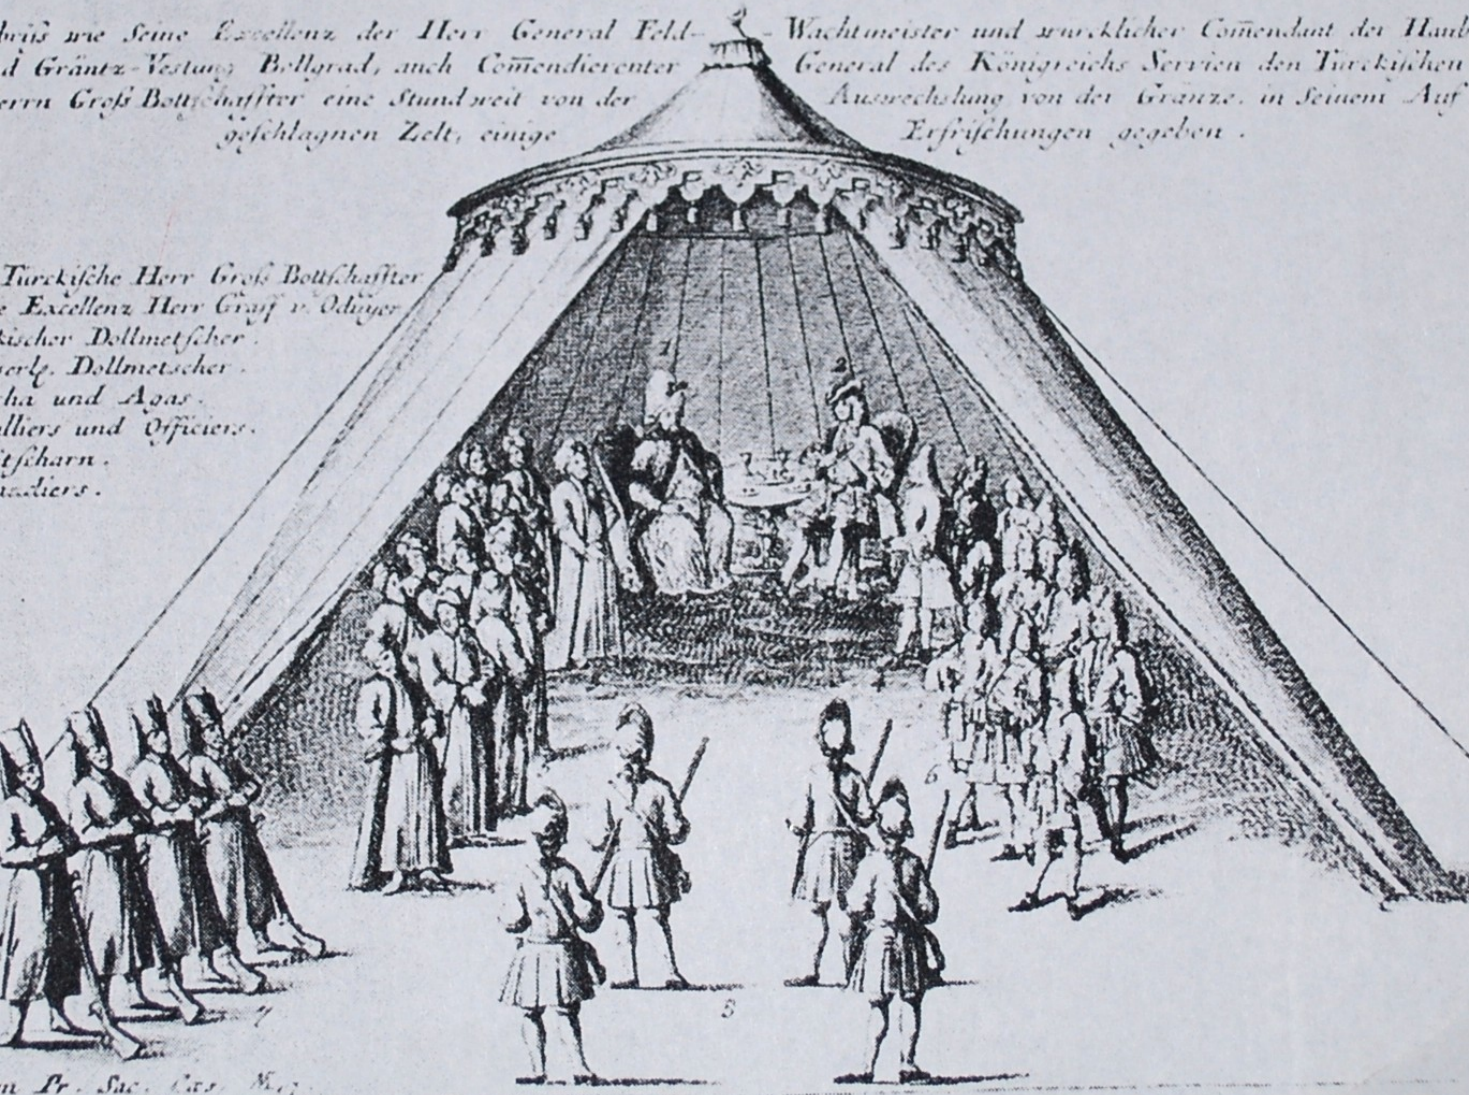 wie Seine Excellenz der Herr General Feld-Wachtmeister und würcklicher Com̄endant der Haub
d Gräntz-Vestung Bellgrad, auch Com̄endierenter General des Königreichs Servien den Türckischen
errn Groß Bottschaffter eine Stund weit von der Auswechslung von der Gränze, in Seinem Auf
geschlagnen Zelt, einige Erfrischungen gegeben.
Türckische Herr Groß Bottschaffter
e Excellenz Herr Graff v. Oduyer
kischer Dollmetscher.
Dollmetscher.
cha und Agas.
alliers und Officiers.
tscharn.
nadiers.
1
2
4
6
7
8
m Pr. Sac. Cæs.